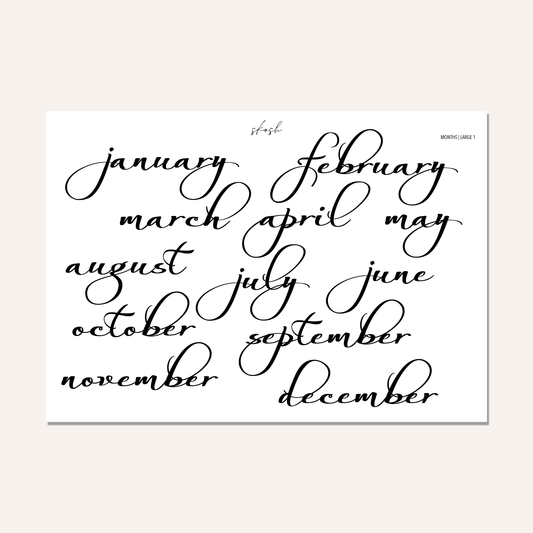 skosh
MONTHS | LARGE 1
january february
march april may
august july june
october september
november december